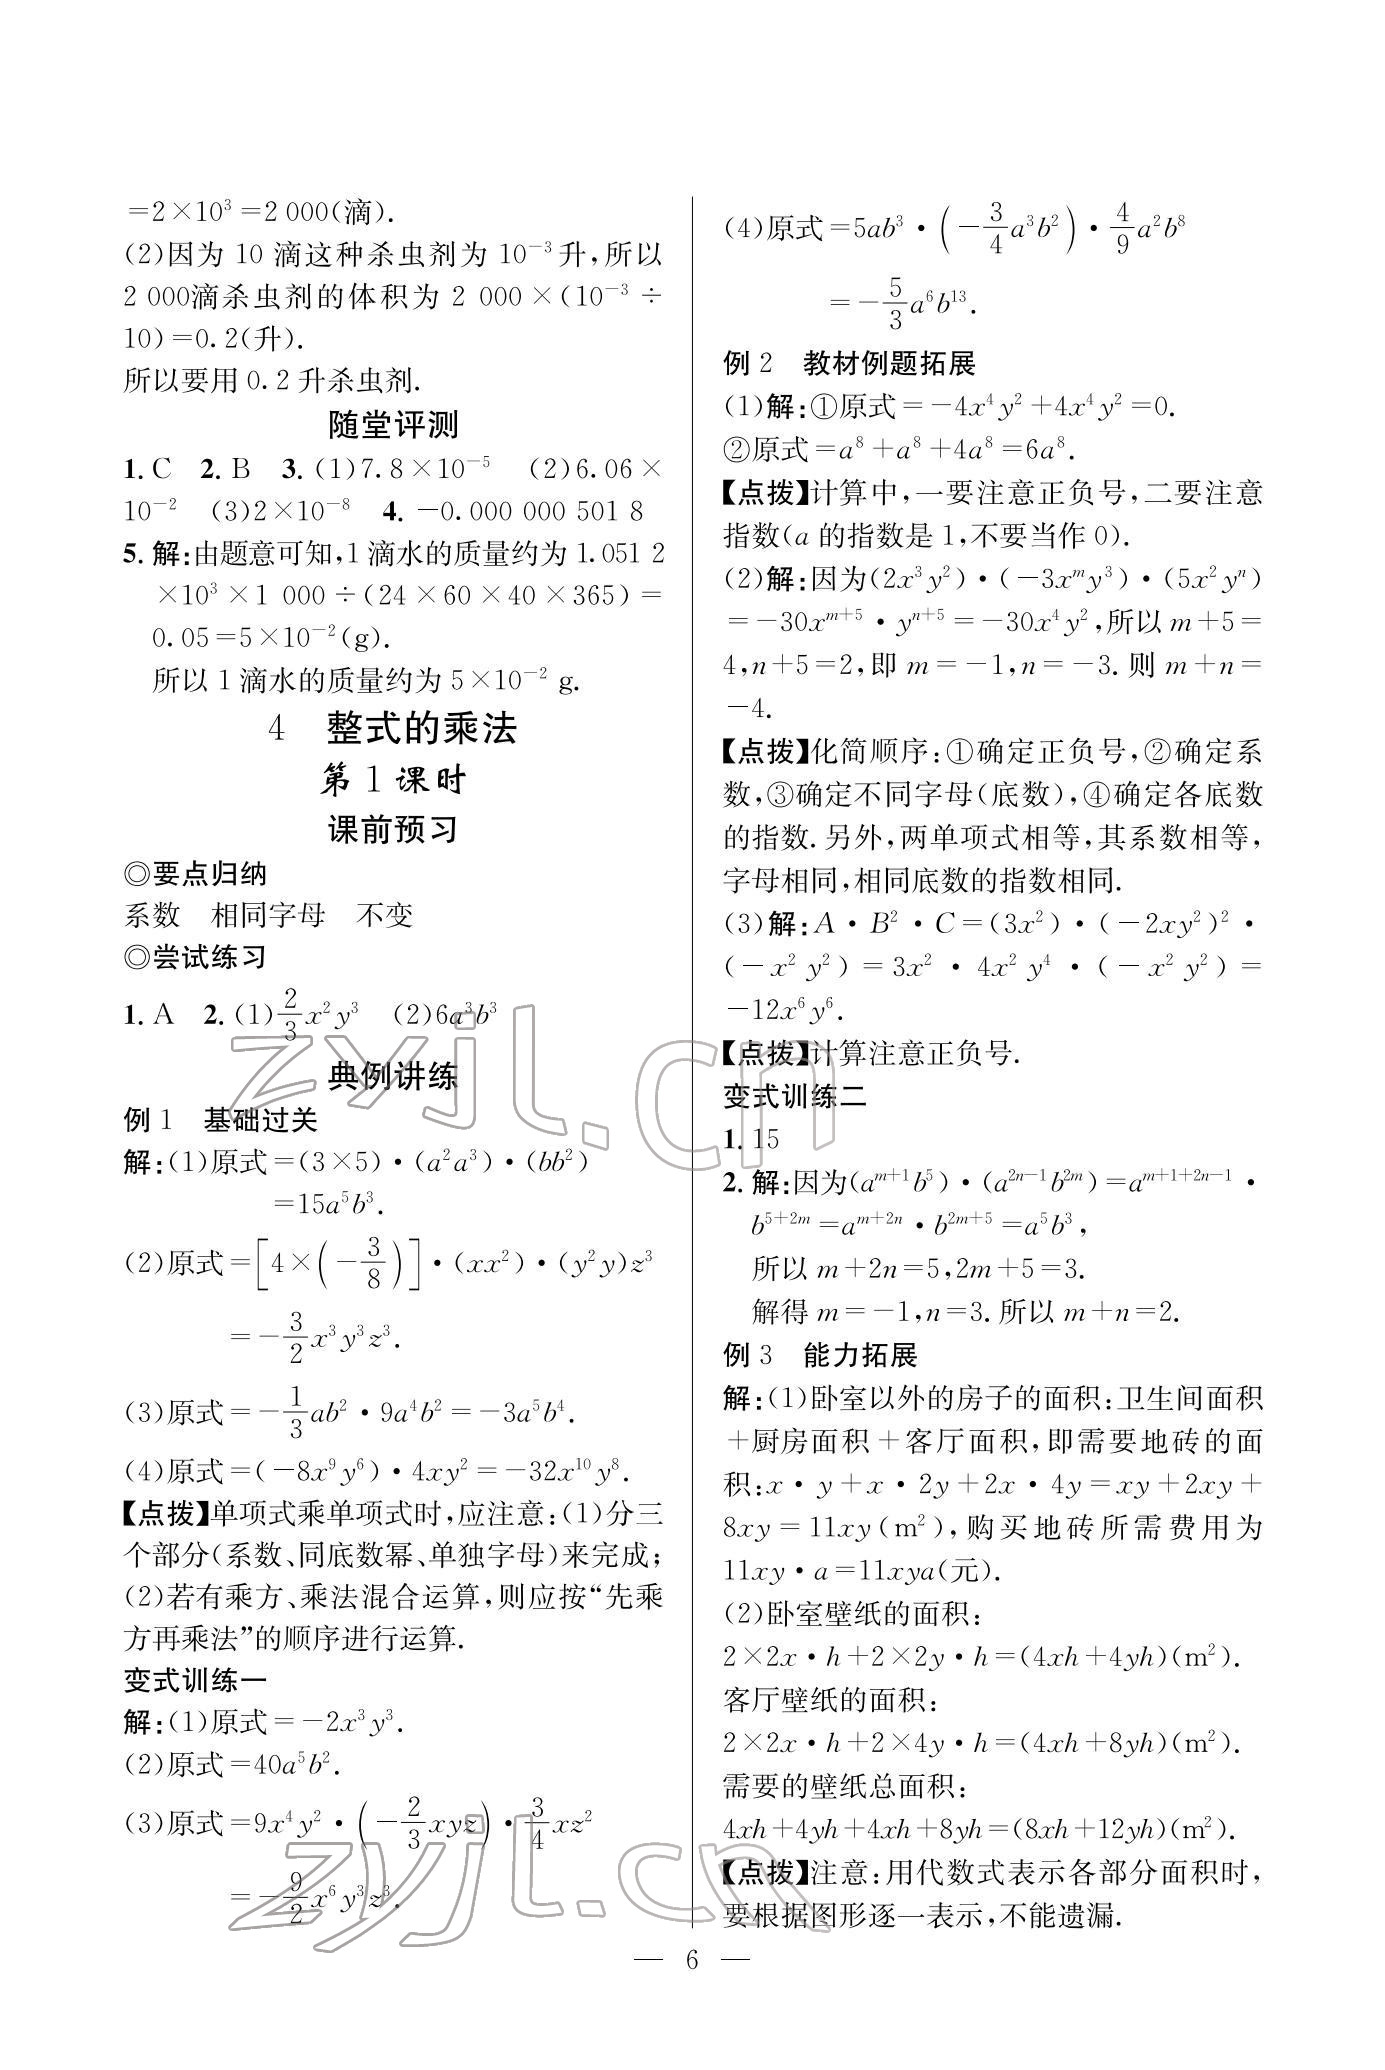 =2×10³=2 000(滴).
(2)因为 10 滴这种杀虫剂为 10⁻³升,所以
2 000滴杀虫剂的体积为 2 000×(10⁻³÷
10)=0.2(升).
所以要用 0.2 升杀虫剂.
随堂评测
1. C 2. B 3. (1)7.8×10⁻⁵ (2)6.06×
10⁻² (3)2×10⁻⁸ 4. -0.000 000 501 8
5. 解:由题意可知,1 滴水的质量约为 1.051 2
×10³×1 000÷(24×60×40×365)=
0.05=5×10⁻²(g).
所以 1 滴水的质量约为 5×10⁻² g.
4 整式的乘法
第 1 课时
课前预习
◎要点归纳
系数 相同字母 不变
◎尝试练习
1. A 2. (1)2/3x²y³ (2)6a³b³
典例讲练
例 1 基础过关
解:(1)原式=(3×5)·(a²a³)·(bb²)
=15a⁵b³.
(2)原式=[4×(-3/8)]·(xx²)·(y²y)z³
=-3/2x³y³z³.
(3)原式=-1/3ab²·9a⁴b²=-3a⁵b⁴.
(4)原式=(-8x⁹y⁶)·4xy²=-32x¹⁰y⁸.
【点拨】单项式乘单项式时,应注意:(1)分三
个部分(系数、同底数幂、单独字母)来完成;
(2)若有乘方、乘法混合运算,则应按“先乘
方再乘法”的顺序进行运算.
变式训练一
解:(1)原式=-2x³y³.
(2)原式=40a⁵b².
(3)原式=9x⁴y²·(-2/3xyz)·3/4xz²
=-9/2x⁶y³z³.
(4)原式=5ab³·(-3/4a³b²)·4/9a²b⁸
=-5/3a⁶b¹³.
例 2 教材例题拓展
(1)解:①原式=-4x⁴y²+4x⁴y²=0.
②原式=a⁸+a⁸+4a⁸=6a⁸.
【点拨】计算中,一要注意正负号,二要注意
指数(a 的指数是 1,不要当作 0).
(2)解:因为(2x³y²)·(-3xᵐy³)·(5x²yⁿ)
=-30xᵐ⁺⁵·yⁿ⁺⁵=-30x⁴y²,所以 m+5=
4,n+5=2,即 m=-1,n=-3. 则 m+n=
-4.
【点拨】化简顺序:①确定正负号,②确定系
数,③确定不同字母(底数),④确定各底数
的指数. 另外,两单项式相等,其系数相等,
字母相同,相同底数的指数相同.
(3)解:A·B²·C=(3x²)·(-2xy²)²·
(-x²y²)=3x²·4x²y⁴·(-x²y²)=
-12x⁶y⁶.
【点拨】计算注意正负号.
变式训练二
1. 15
2. 解:因为(aᵐ⁺¹b⁵)·(a²ⁿ⁻¹b²ᵐ)=aᵐ⁺¹⁺²ⁿ⁻¹·
b⁵⁺²ᵐ=aᵐ⁺²ⁿ·b²ᵐ⁺⁵=a⁵b³,
所以 m+2n=5,2m+5=3.
解得 m=-1,n=3. 所以 m+n=2.
例 3 能力拓展
解:(1)卧室以外的房子的面积:卫生间面积
+厨房面积+客厅面积,即需要地砖的面
积:x·y+x·2y+2x·4y=xy+2xy+
8xy=11xy(m²),购买地砖所需费用为
11xy·a=11xya(元).
(2)卧室壁纸的面积:
2×2x·h+2×2y·h=(4xh+4yh)(m²).
客厅壁纸的面积:
2×2x·h+2×4y·h=(4xh+8yh)(m²).
需要的壁纸总面积:
4xh+4yh+4xh+8yh=(8xh+12yh)(m²).
【点拨】注意:用代数式表示各部分面积时,
要根据图形逐一表示,不能遗漏.
— 6 —
zyjl.cn
zyjl.cn